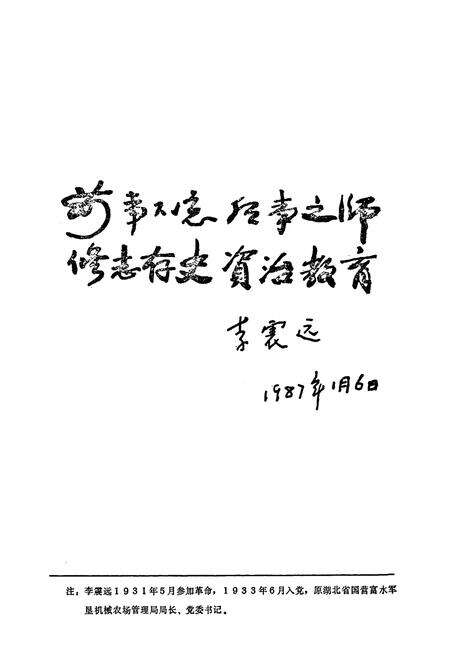 前事不忘 后事之师
修志存史 資治教育
李震远
1987年1月6日
注：李震远1931年5月参加革命，1933年6月入党，原湖北省国营富水军
垦机械农场管理局局长、党委书记。